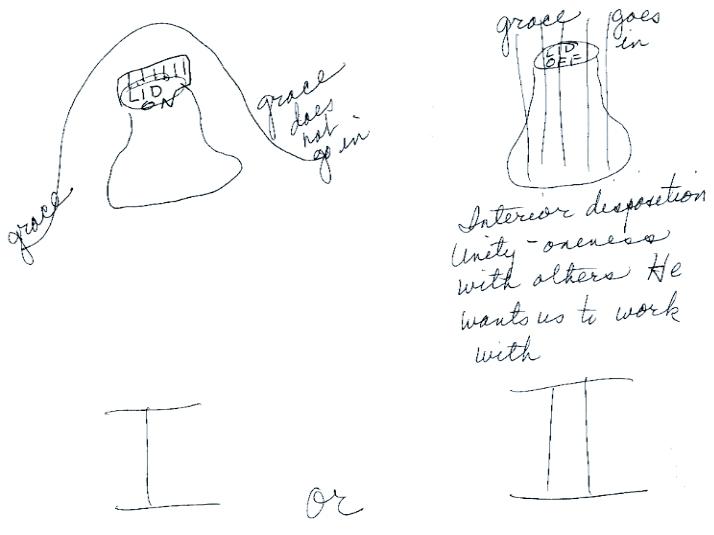 LID
ON
grace
does
not
go in
grace
grace goes
in
LID
OFF
Interior disposition
Unity - oneness
with others He
wants us to work
with
I or II